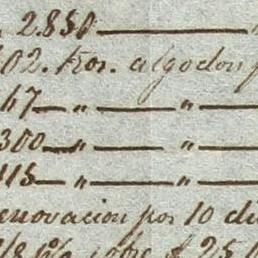 2.850 — "
02. tros. algodon p
67 — " — " —
300 — " — " —
115 — " — " —
enovacion por 10 di